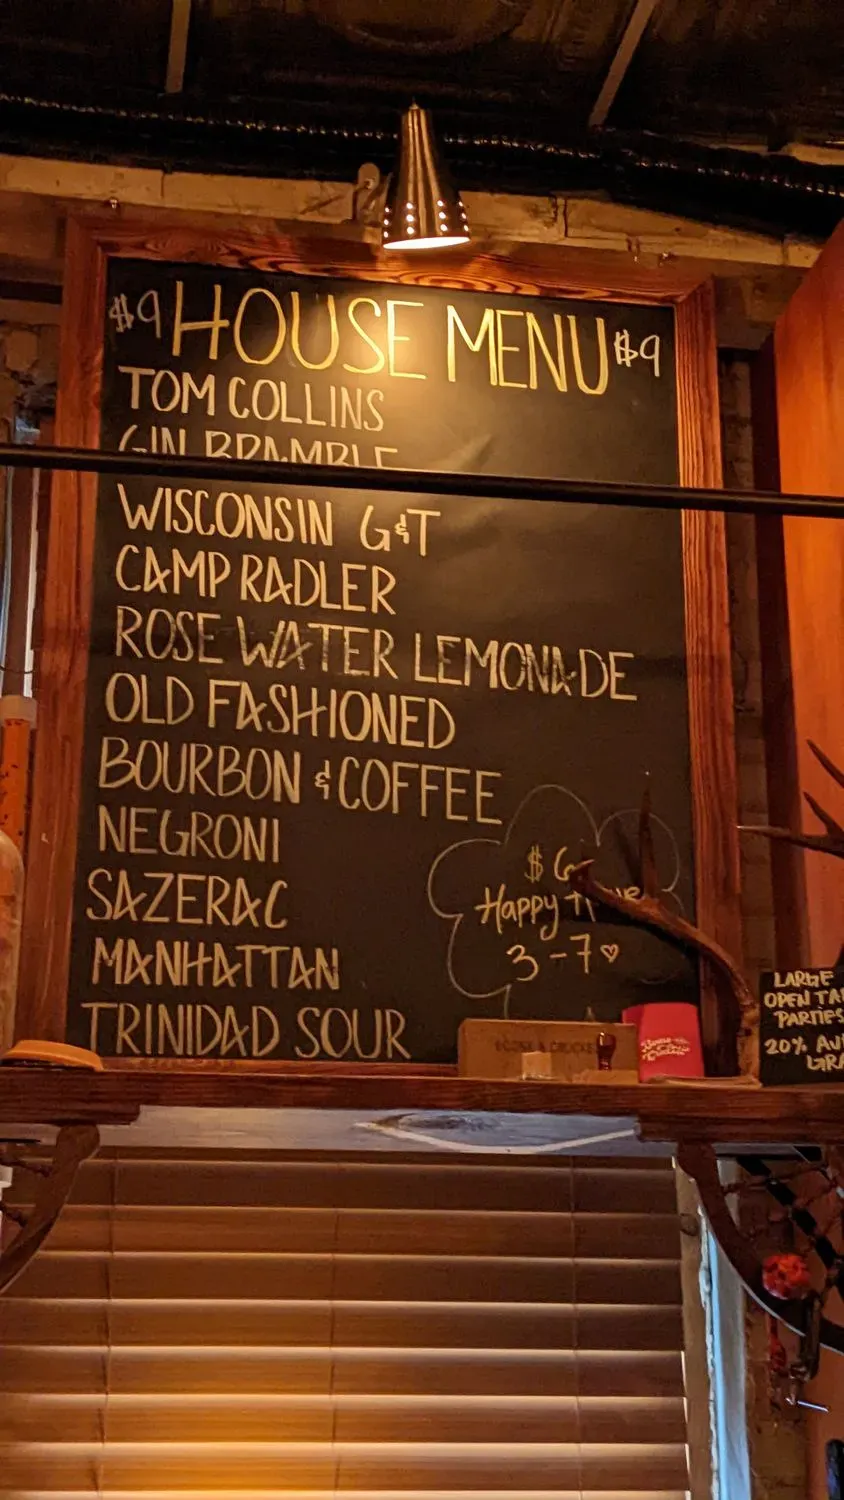 $9 HOUSE MENU $9
TOM COLLINS
GIN BRAMBLE
WISCONSIN G&T
CAMP RADLER
ROSE WATER LEMONADE
OLD FASHIONED
BOURBON & COFFEE
NEGRONI
SAZERAC
MANHATTAN
TRINIDAD SOUR
$6
Happy
3-7♡
LARGE
OPEN TA
PARTIES
20% AU
GRA